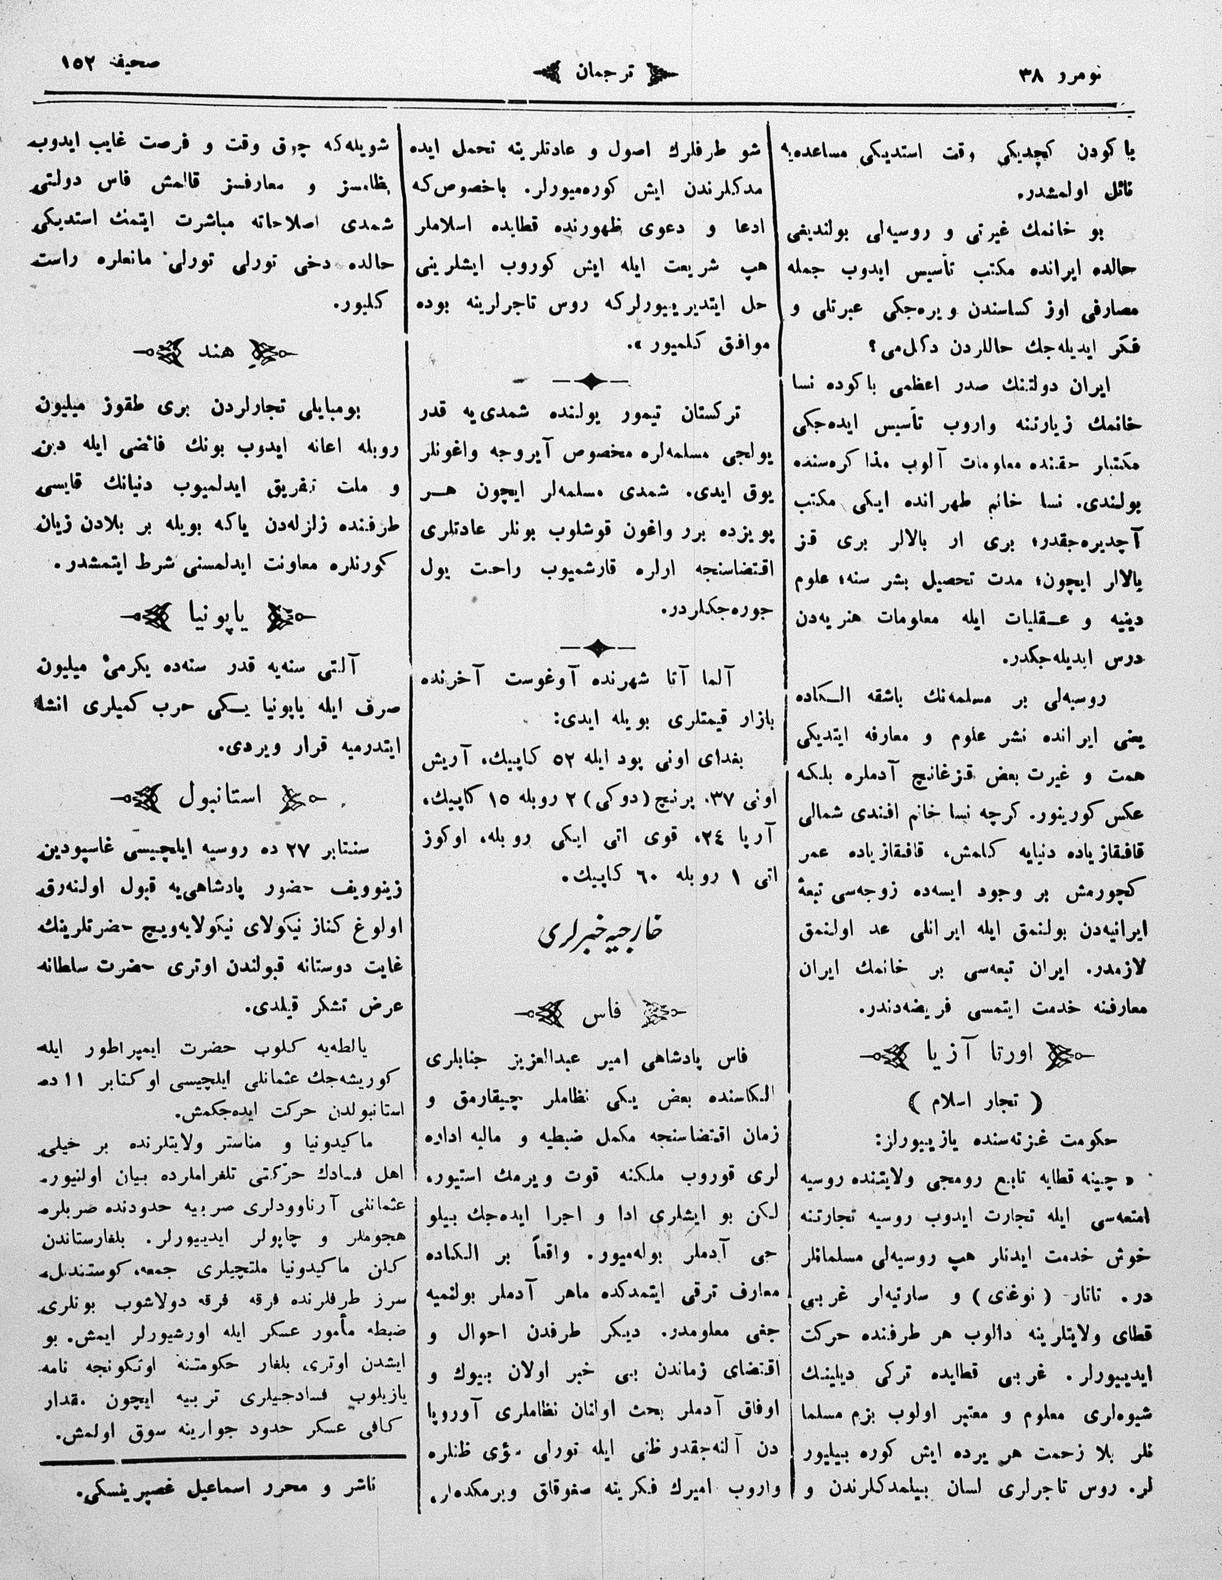 نومرو ٣٨
ترجمان
صحیفه ١٥٢
باكودن كچدیكی وقت استدیكی مساعده‌یه
نائل اولمشدر.
بو خانمك غیرتی و روسیه‌لی بولندیغی
حالده ایرانده مكتب تأسیس ایدوب جمله
مصارفی اوز كساسندن ویره‌جكی عبرتلی و
فكر ایدیله‌جك حاللردن دگل‌می؟
ایران دولتنك صدر اعظمی باكوده نسا
خانمك زیارتنه واروب تأسیس ایده‌جكی
مكتبلر حقنده معلومات آلوب مذاكره‌سنده
بولندی. نسا خانم طهرانده ایكی مكتب
آچدیره‌جقدر؛ بری ار بالالر بری قز
بالالر ایچون؛ مدت تحصیل بشر سنه؛ علوم
دینیه و عقلیات ایله معلومات هنریه‌دن
درس ایدیله‌جكدر.
روسیه‌لی بر مسلمه‌نك باشقه الكاده
یعنی ایرانده نشر علوم و معارفه ایتدیكی
همت و غیرت بعض قزغانچ آدملره بلكه
عكس كورینور. كرچه نسا خانم افندی شمالی
قافقازیاده دنیایه كلمش، قافقازیاده عمر
كچورمش بر وجود ایسه‌ده زوجه‌سی تبعۀ
ایرانیه‌دن بولنمق ایله ایرانلی عد اولنمق
لازمدر. ایران تبعه‌سی بر خانمك ایران
معارفنه خدمت ایتمسی فریضه‌دندر.
اورتا آزیا
( تجار اسلام )
حكومت غزته‌سنده یازییورلر:
« چینه قطایه تابع رومجی ولایتنده روسیه
امتعه‌سی ایله تجارت ایدوب روسیه تجارتنه
خوش خدمت ایدنلر هپ روسیه‌لی مسلمانلر
در. تاتار (نوغای) و سارتیه‌لر غربی
قطای ولایتلرینه دالوب هر طرفنده حركت
ایدییورلر. غربی قطایده تركی دیلینك
شیوه‌لری معلوم و معتبر اولوب بزم مسلما
نلر بلا زحمت هر یرده ایش كوره بیلیور
لر. روس تاجرلری لسان بیلمدكلرندن و
شو طرفلرك اصول و عادتلرینه تحمل ایده
مدكلرندن ایش كوره‌میورلر. باخصوص‌كه
ادعا و دعوی ظهورنده قطایده اسلاملر
هپ شریعت ایله ایش كوروب ایشلرینی
حل ایتدیرییورلركه روس تاجرلرینه بوده
موافق كلمیور ».
تركستان تیمور یولنده شمدی‌یه قدر
یولجی مسلمه‌لره مخصوص آیروجه واغونلر
یوق ایدی. شمدی مسلمه‌لر ایچون هر
پویزده برر واغون قوشلوب بونلر عادتلری
اقتضاسنجه ارلره قارشمیوب راحت یول
جوره‌جكلردر.
آلما آتا شهرنده آوغوست آخرنده
بازار قیمتلری بویله ایدی:
بغدای اونی پود ایله ٥٢ كاپیك، آریش
اونی ٣٧. پرنج (دوكی) ٢ روبله ١٥ كاپیك،
آرپا ٢٤، قوی اتی ایكی روبله، اوكوز
اتی ١ روبله ٦٠ كاپیك.
خارجیه خبرلری
فاس
فاس پادشاهی امیر عبدالعزیز جنابلری
الكاسنده بعض یكی نظاملر چیقارمق و
زمان اقتضاسنجه مكمل ضبطیه و مالیه اداره
لری قوروب ملكنه قوت ویرمك استیور،
لكن بو ایشلری ادا و اجرا ایده‌جك بیلو
جی آدملر بوله‌میور. واقعاً بر الكاده
معارف ترقی ایتمدكده ماهر آدملر بولنمیه
جغی معلومدر. دیكر طرفدن احوال و
اقتضای زماندن بی خبر اولان بیوك و
اوفاق آدملر بحث اولنان نظاملری آوروپا
دن آلنه‌جقدر ظنی ایله تورلی سؤی ظنلره
واروب امیرك فكرینه صغوقلق ویرمكده‌لر،
شویله‌كه چوق وقت و فرصت غایب ایدوب
نظامسز و معارفسز قالمش فاس دولتی
شمدی اصلاحاته مباشرت ایتمك استدیكی
حالده دخی تورلی تورلی مانعلره راست
كلیور.
هند
بومبایلی تجارلردن بری طقوز میلیون
روبله اعانه ایدوب بونك فائضی ایله دین
و ملت تفریق ایدلمیوب دنیانك قایسی
طرفنده زلزله‌دن یاكه بویله بر بلادن زیان
كورنلره معاونت ایدلمسنی شرط ایتمشدر.
یاپونیا
آلتی سنه‌یه قدر سنه‌ده یكرمی میلیون
صرف ایله یاپونیا یكی حرب كمیلری انشا
ایتدرمیه قرار ویردی.
استانبول
سنتابر ٢٧ ده روسیه ایلچیسی غاسپودین
زینوویف حضور پادشاهی‌یه قبول اولنه‌رق
اولوغ كناز نیكولای نیكولایه‌ویچ حضرتلرینك
غایت دوستانه قبولندن اوتری حضرت سلطانه
عرض تشكر قیلدی.
یالطه‌یه كلوب حضرت ایمپراطور ایله
كوریشه‌جك عثمانلی ایلچیسی اوكتابر ١١ ده
استانبولدن حركت ایده‌جكمش.
ماكیدونیا و مناستر ولایتلرنده بر خیلی
اهل فسادك حركتی تلغراملرده بیان اولنیور.
عثمانلی آرناوودلری صربیه حدودنده ضربلره
هجوملر و چاپولر ایدییورلر. بلغارستاندن
كلن ماكیدونیا ملتچیلری جمعه، كوستندل،
سرز طرفلرنده فرقه فرقه دولاشوب بونلری
ضبطه مأمور عسكر ایله اورشیورلر ایمش. بو
ایشدن اوتری بلغار حكومتنه اوتكونجه نامه
یازیلوب فسادجیلری تربیه ایچون مقدار
كافی عسكر حدود جوارینه سوق اولمش.
ناشر و محرر اسماعیل غصپرینسكی.